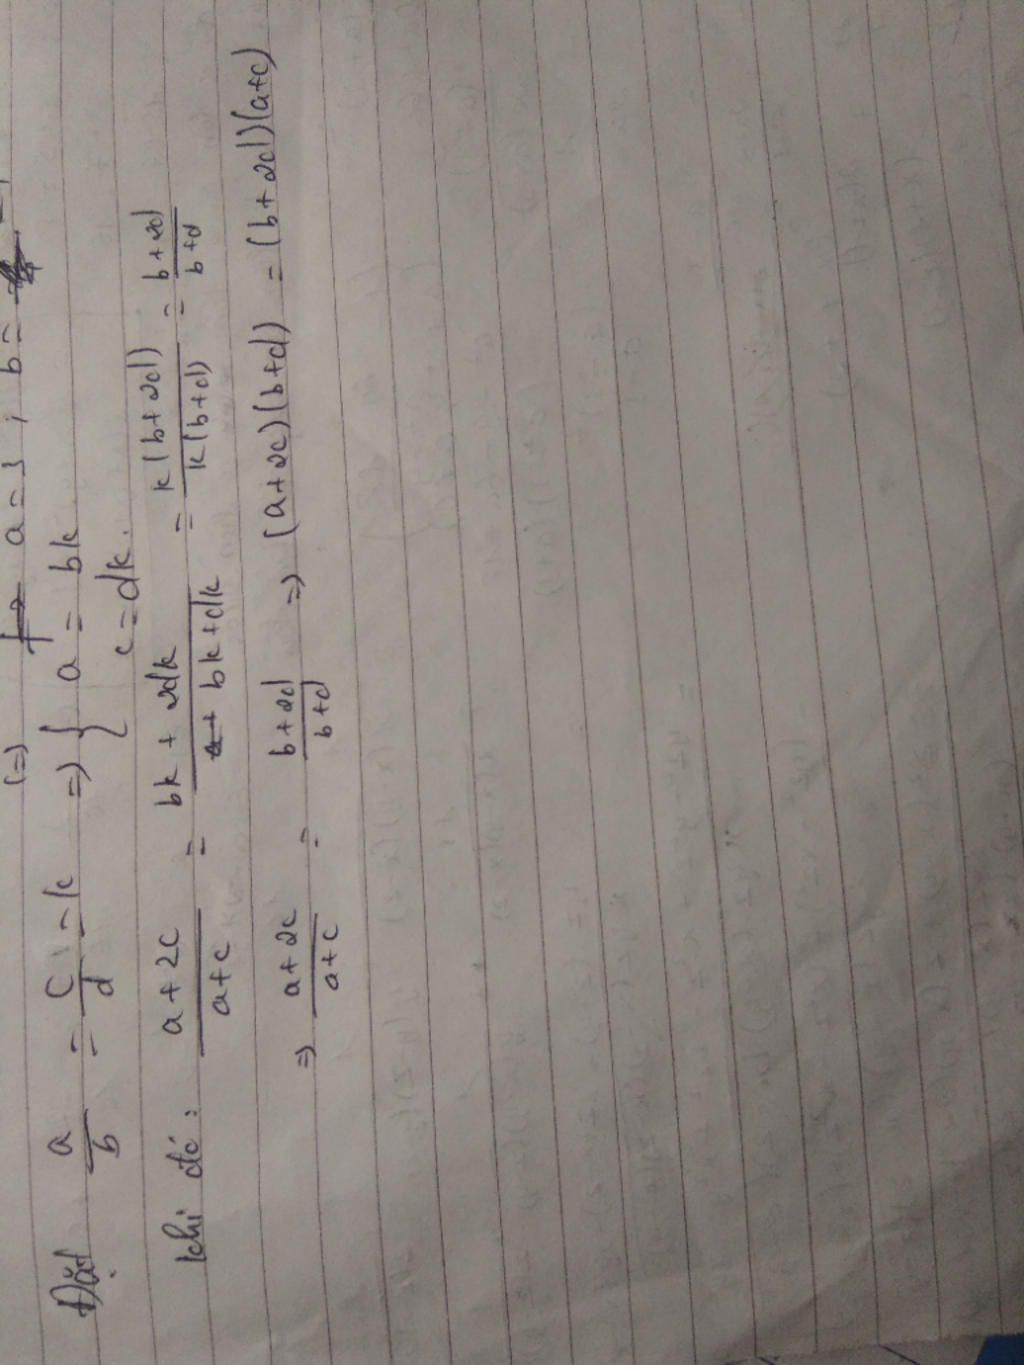 (=) a = 1 ; b =
Đặt a/b = c/d = k => { a = bk
c = dk.
Khi đó : (a + 2c)/(a+c) = (bk + 2dk)/(bk + dk) = k(b + 2d)/k(b+d) = (b + 2d)/(b+d)
=> (a + 2c)/(a + c) = (b + 2d)/(b+d) => (a + 2c)(b+d) = (b + 2d)(a+c)